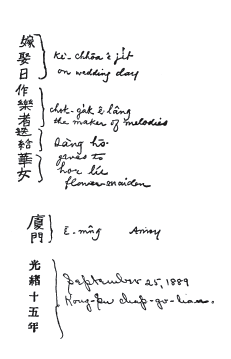 嫁娶日
kè-chhōa ê ji̍t
on wedding day
作樂者
chok-ga̍k ê lâng
the maker of melodies
送給
sàng hō·
gives to
華女
hoa lú
flower-maiden
廈門
Ē-mn̂g Amoy
光緒十五年
September 25, 1889
Kong-sū cha̍p-gō· liân.